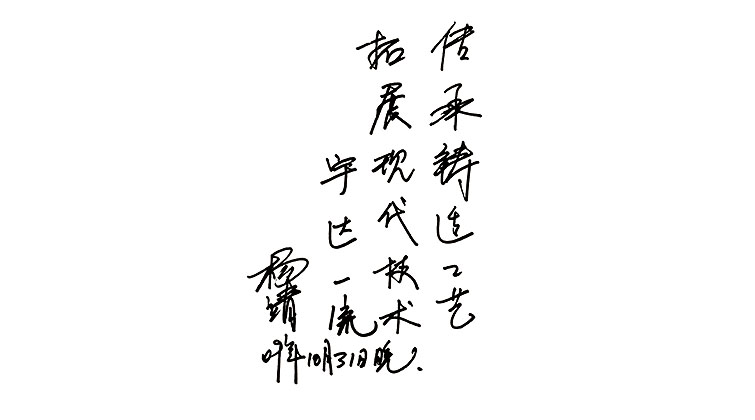 传承铸造工艺
拓展现代技术
宇达一流
杨靖
09年10月31日晚.